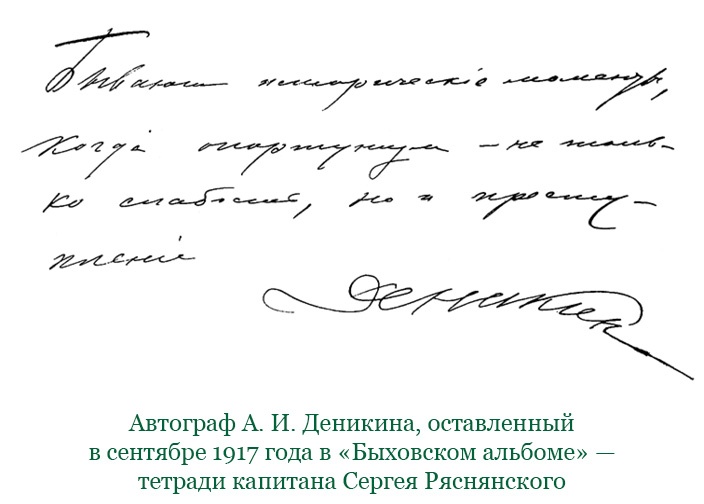 Бывают историческіе моменты,
когда опортунизм — не толь-
ко слабость, но и престу-
пленіе
Деникин
Автограф А. И. Деникина, оставленный
в сентябре 1917 года в «Быховском альбоме» —
тетради капитана Сергея Ряснянского